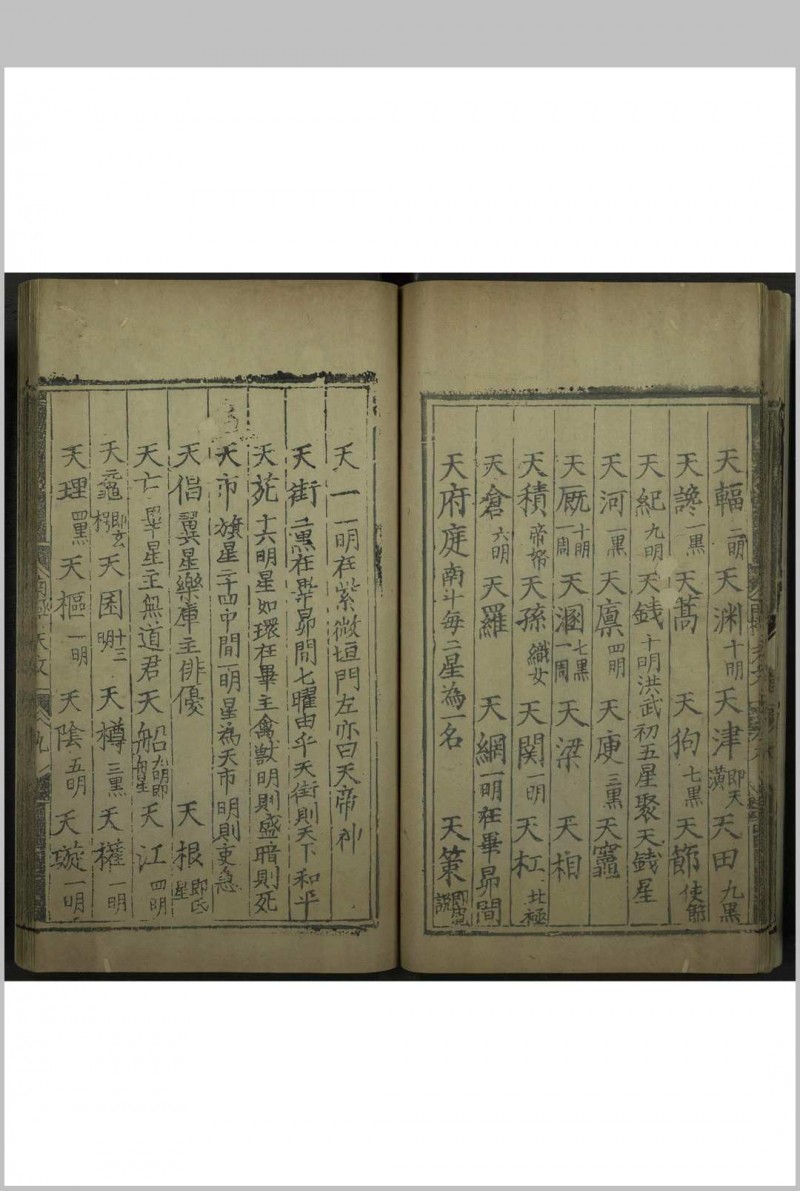 天輻二明天渊十明天津即天潢天田九黑
天讒一黑天蒿天狗七黑天節使節
天紀九明天錢十明洪武初五星聚天錢星
天河一黑天廪四明天庾三黑天竈
天厩十明一周天溷七黑一周天梁天相
天積帝帑天孫織女天関一明天杠北極
天倉六明天羅天網一明在畢昴間
天府庭南斗每二星為一名天策即傅說
天一一明在紫微垣門左亦曰天帝神
天街二黑在畢昴間七曜由乎天街則天下和平
天苑十六明星如環在畢主禽獣明則盛暗則死
天市旗星二十四中間一明星為天市明則吏急
天倡翼星樂庫主俳優天根即氐星
天亡畢星主無道君天船九明即舟星天江四明
天黿即玄枵天囷十三明天樽三黑天權一明
天理四黑天樞一明天陰五明天璇一明
南極天文九